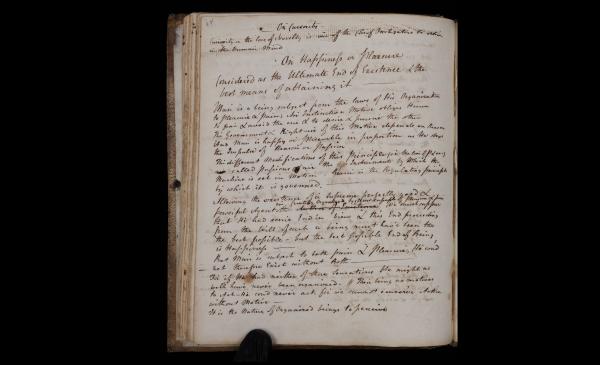 On Curiosity
Curiosity or the love of Novelty, is one of the Chief Instigators to action
in the Human Mind
On Happiness or Pleasure
Considered as the Ultimate End of Existence & the
best means of attaining it
Man is a being subject from the laws of His Organization
to Pleasure & Pain. An Instinctive Motive obliges Him
to the one & to desire & pursue the other
The Government & Right use of this Motive depends on Reason
Man is Happy or Miserable in proportion as He obeys
the Impulse of Reason or Passion
The different Modifications of this Principle
are called Passions are the Instruments by Which the
Machine is set in Motion Reason is the Regulating principle
by which it is governed.
Allowing the existence of a supreme perfectly good &
powerful Agent the of we must suppose
that He had some End in View & this End proceeding
from the Will of such a being must have been the
the best possible - but the best possible End of Being
is Happiness
But Man is subject to both pain & Pleasure, He could
not therefore Exist without both
If He had neither of these Sensations He might as
well have never been organized. If there being no motive
to Act He could never act for we cannot conceive Action
without Motive
It is the Nature of Organized beings to perceive